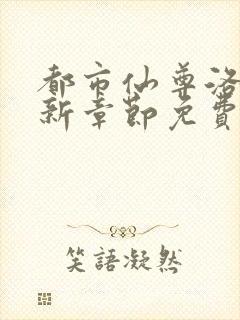 都市仙尊洛
新章節免費
笑語凝然